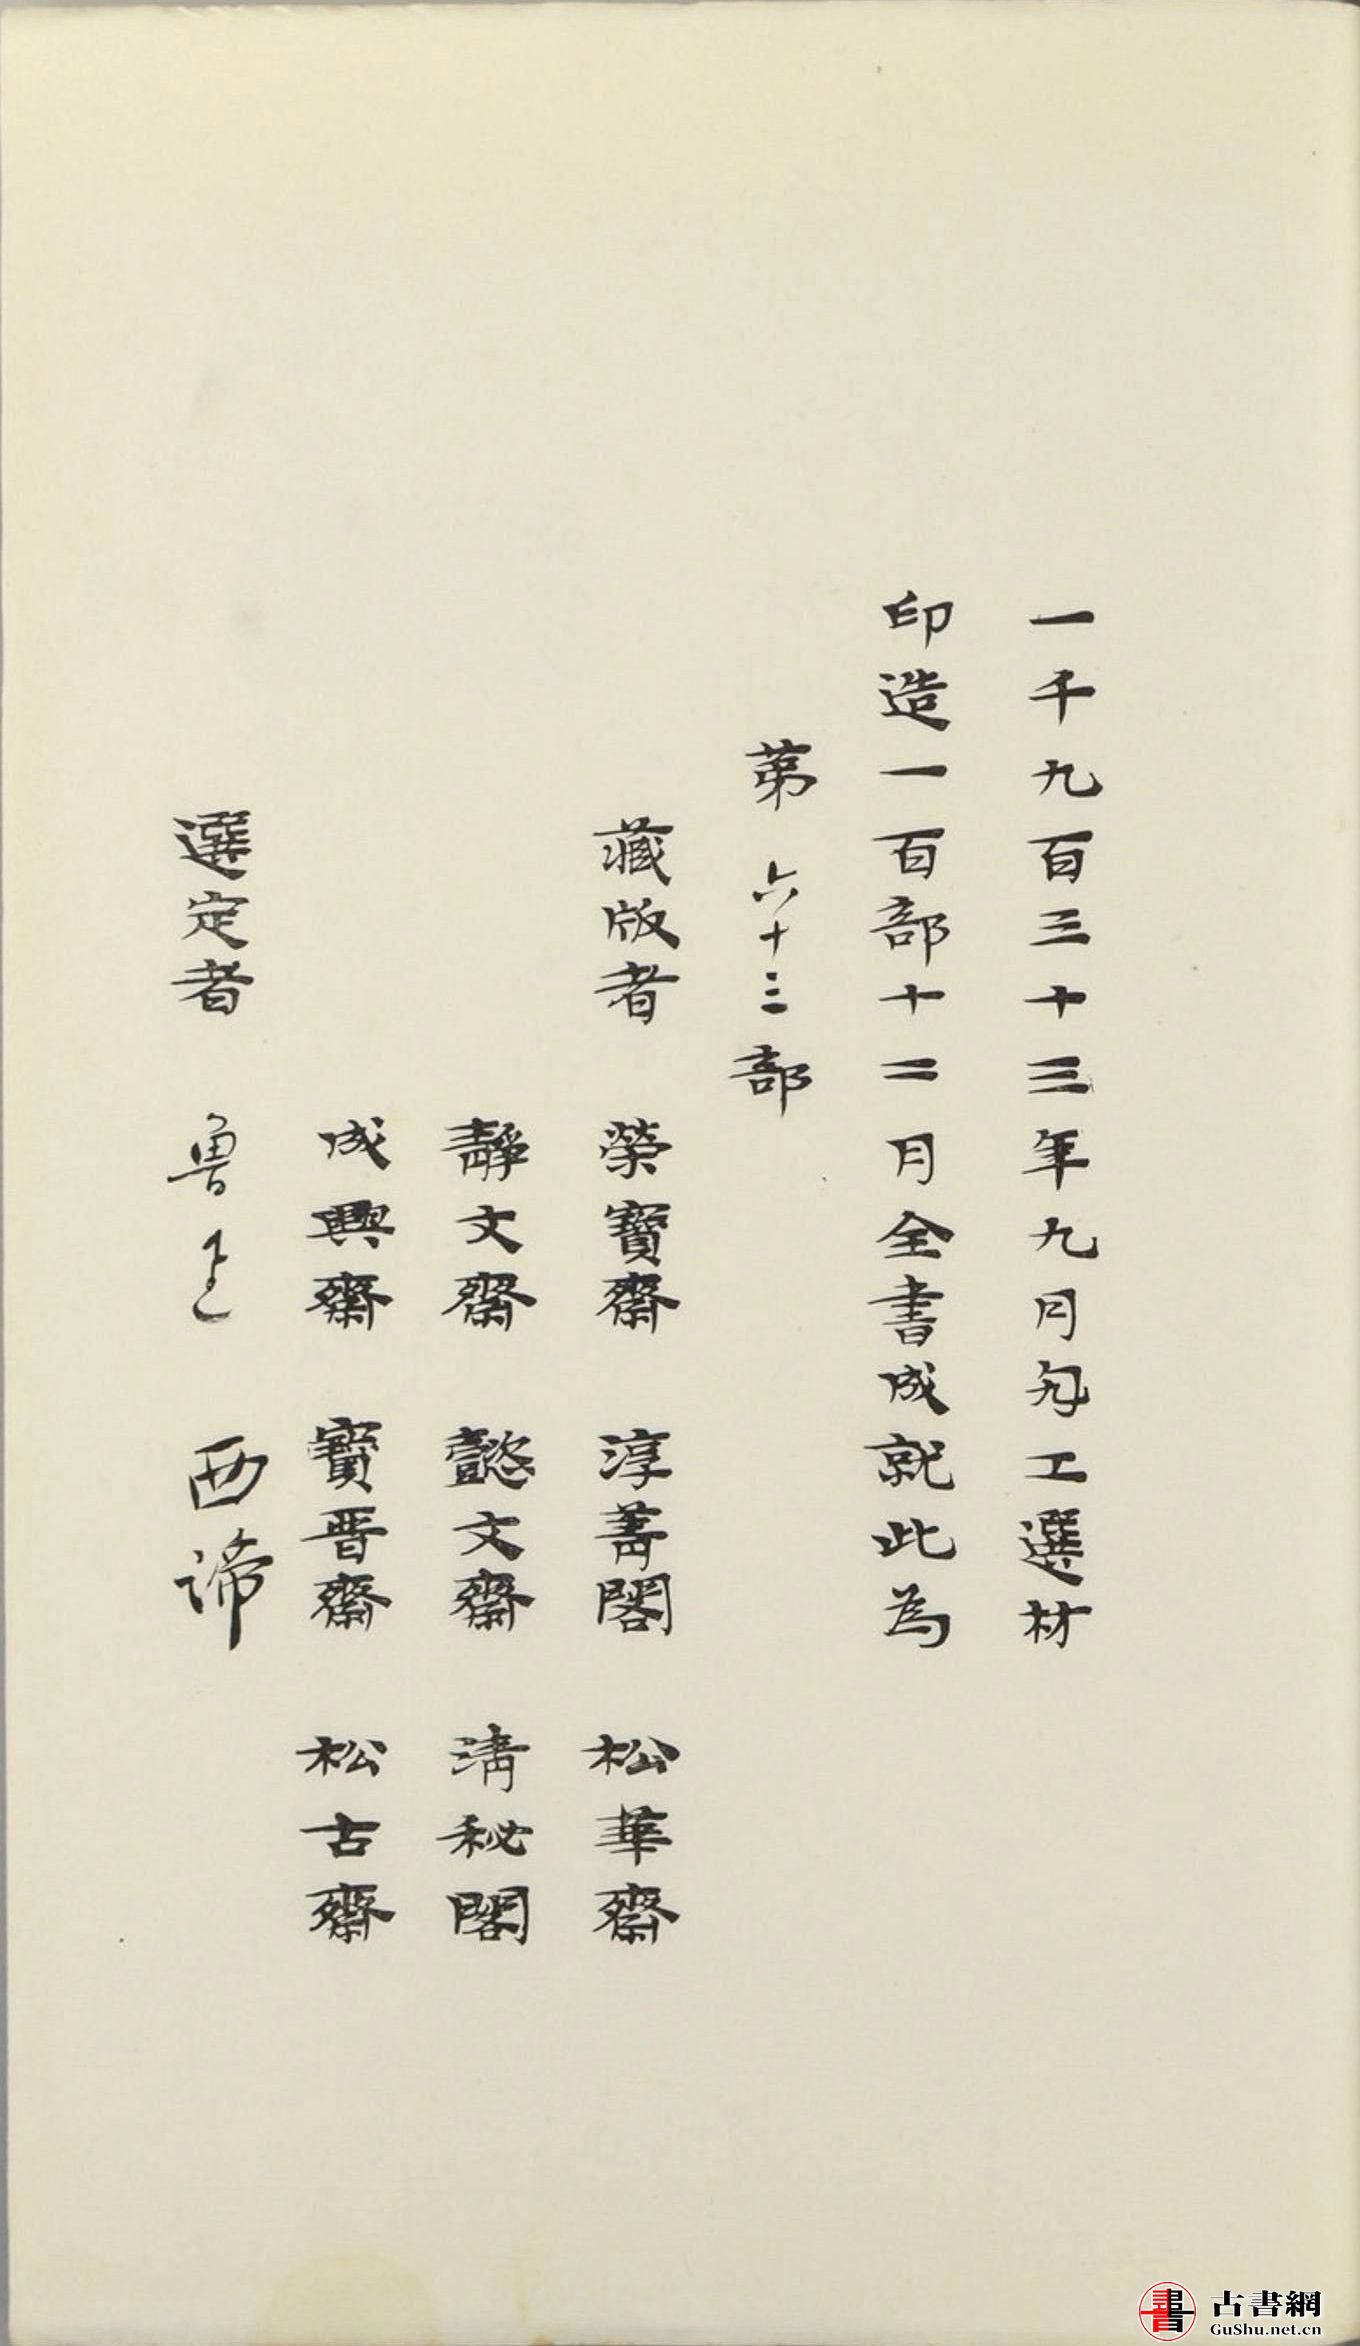 一千九百三十三年九月勼工選材
印造一百部十二月全書成就此為
第六十三部
藏版者 榮寶齋 淳菁閣 松華齋
靜文齋 懿文齋 清秘閣
成興齋 寶晋齋 松古齋
選定者 魯迅 西諦
古書網
GuShu.net.cn